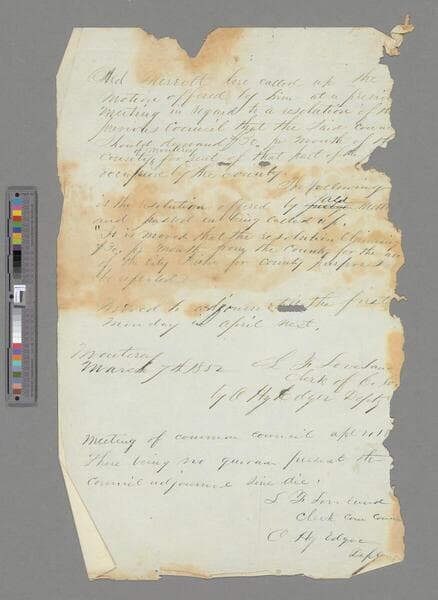 Ald Merrott here called up the
motion offered by him at a previ
meeting in regard to a resolution of the
previous Council that the said
should demand $70. pr month of
County of Monterey for rent of that part of the
occupied by the County.
The following
is the resolution offered by Ald
and passed on being called up.
"It is moved that the resolution claiming
$70. pr month from the County for the
of the City for County purposes
be repealed.
Moved to adjourn the first
Monday in April next.
Monterey
March 7th 1852
Clerk of
by O Hy Edgar Depty
Meeting of common council apl
There being no quorum present the
council adjourned sine die.
Clerk com
O Hy Edgar